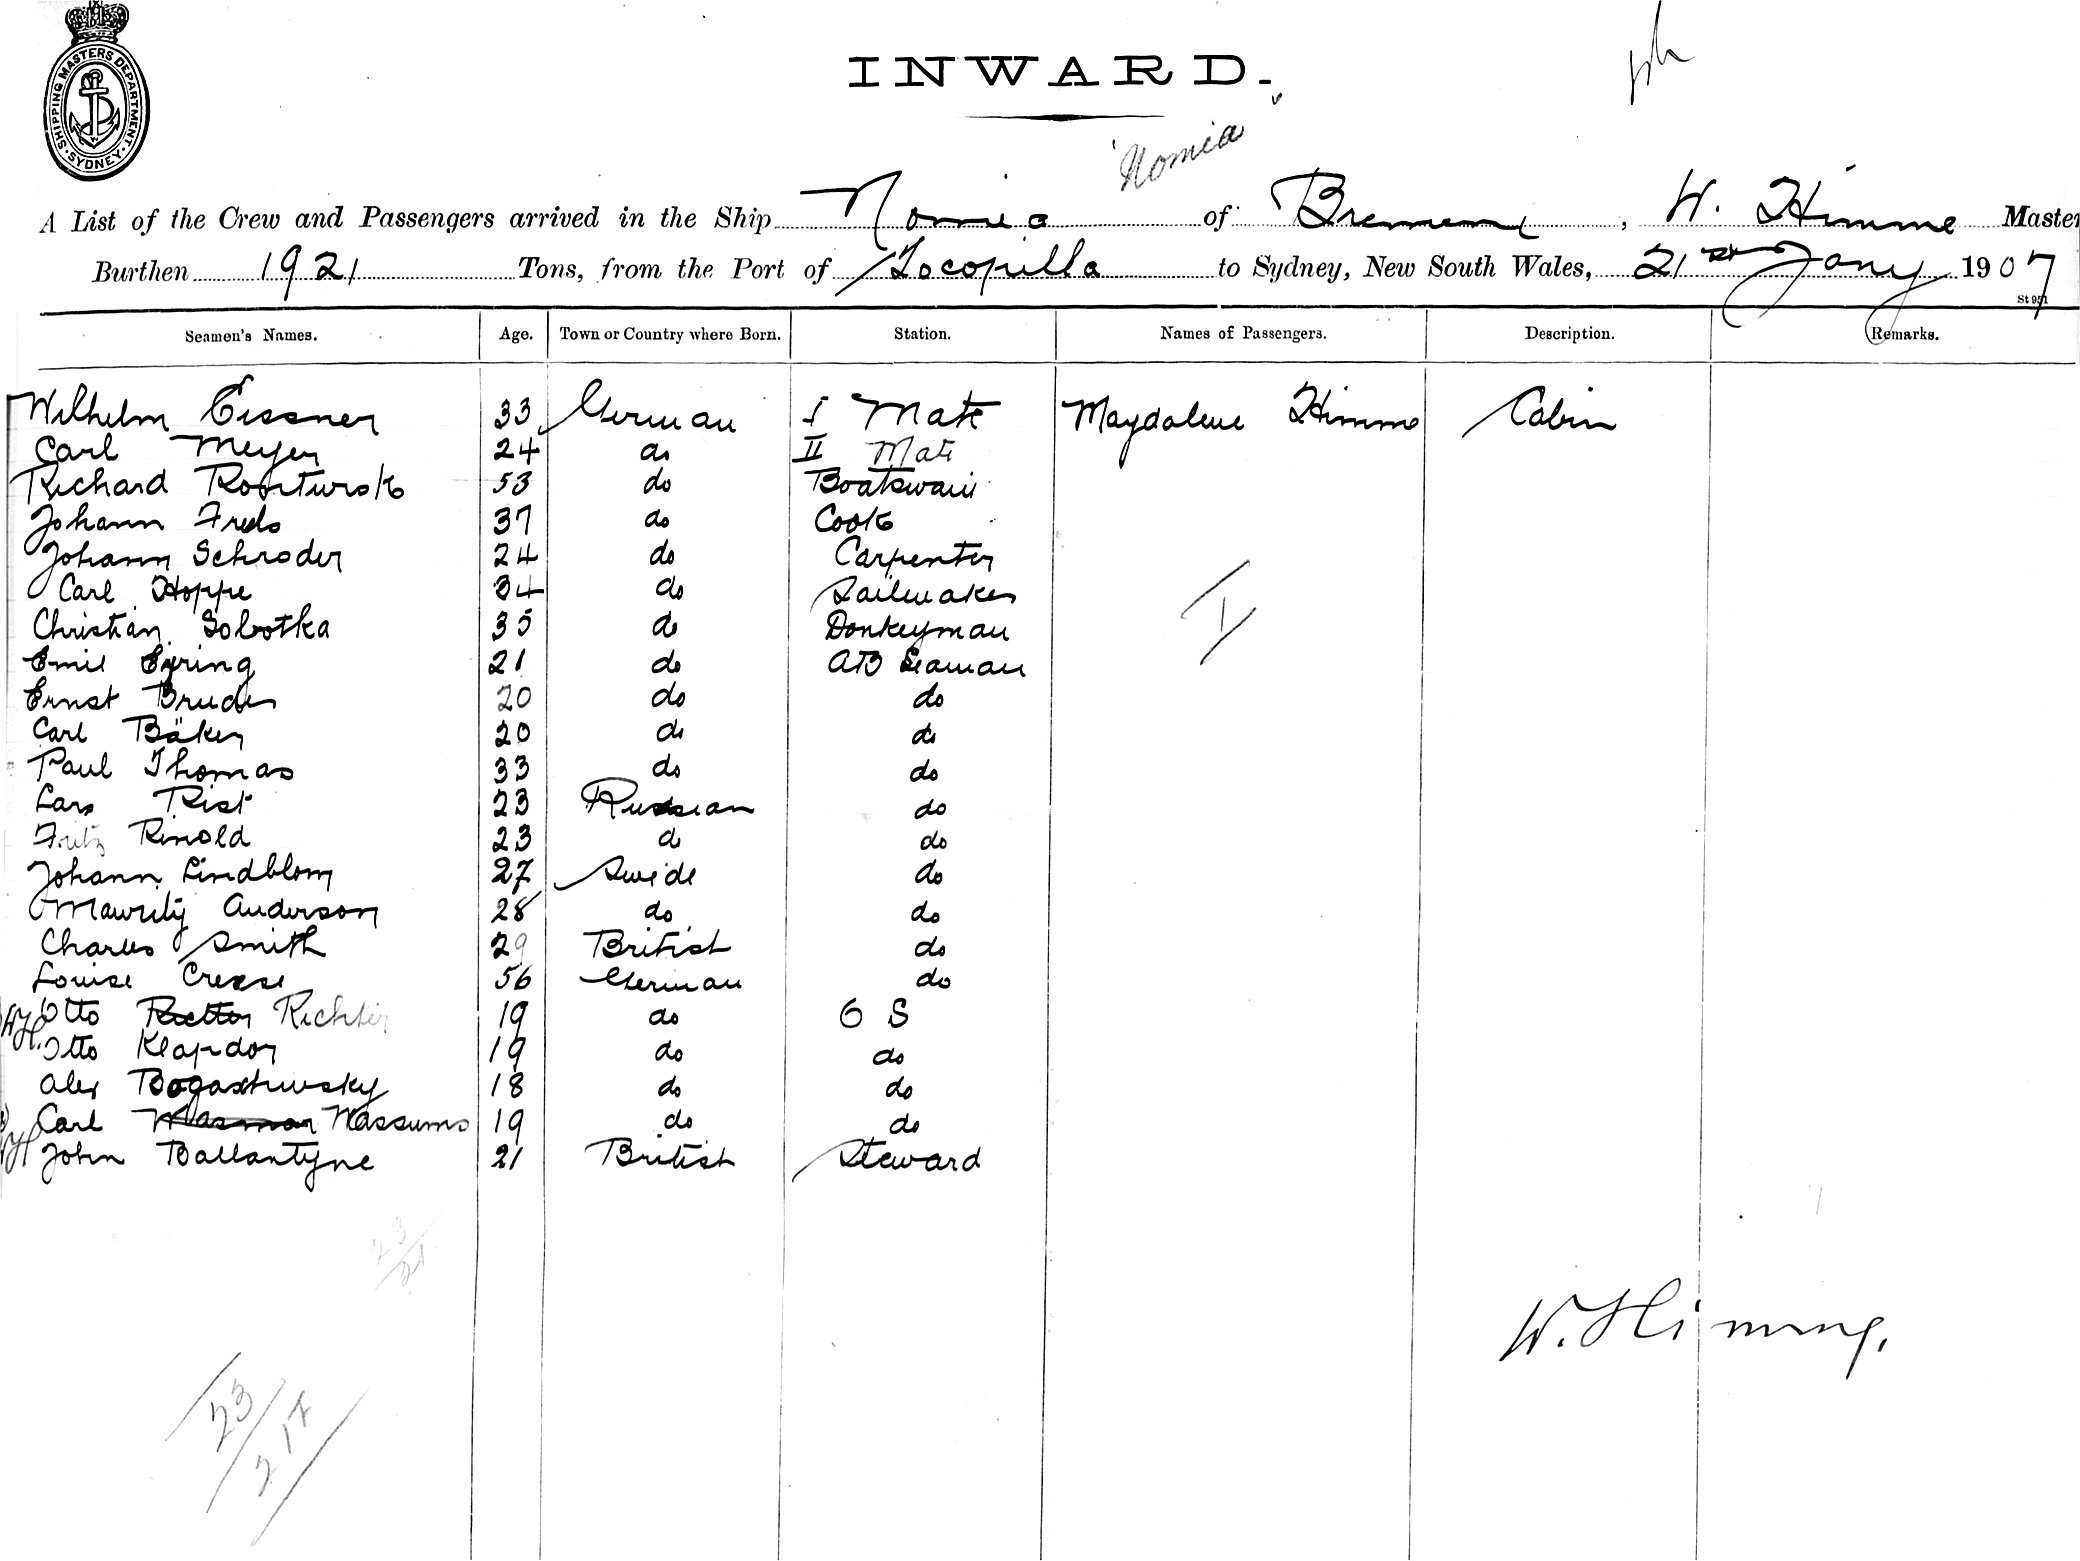 SHIPPING MASTERS DEPARTMENT. SYDNEY.
INWARD.
"Nomia"
A List of the Crew and Passengers arrived in the Ship Nomia of Bremen, W. Himme Master
Burthen 1921 Tons, from the Port of Tocopilla to Sydney, New South Wales, 21st Jany 1907
St 951
Seamen's Names. Age. Town or Country where Born. Station. Names of Passengers. Description. Remarks.
Wilhelm Eissner 33 German I Mate Magdalene Himme Cabin
Carl Meyer 24 do II Mate
Richard 53 do Boatswain
Johann 37 do Cook
Johann Schroder 24 do Carpenter
Carl Hoppe 34 do Sailmaker
Christian Sobotka 35 do Donkeyman
Emil 21 do AB Seaman
Ernst Bruder 20 do do
Carl Bäker 20 do do
Paul Thomas 33 do do
Lars Rist 23 Russian do
Fritz Rinold 23 do do
Johann Lindblom 27 Swede do
Mauritz Anderson 28 do do
Charles Smith 29 British do
Louise 56 German do
W.H. Otto Richter 19 do O S
Otto Klapdor 19 do do
Alex 18 do do
Carl Wassums 19 do do
WH John Ballantyne 21 British Steward
23/21
W. Himme.
23/217